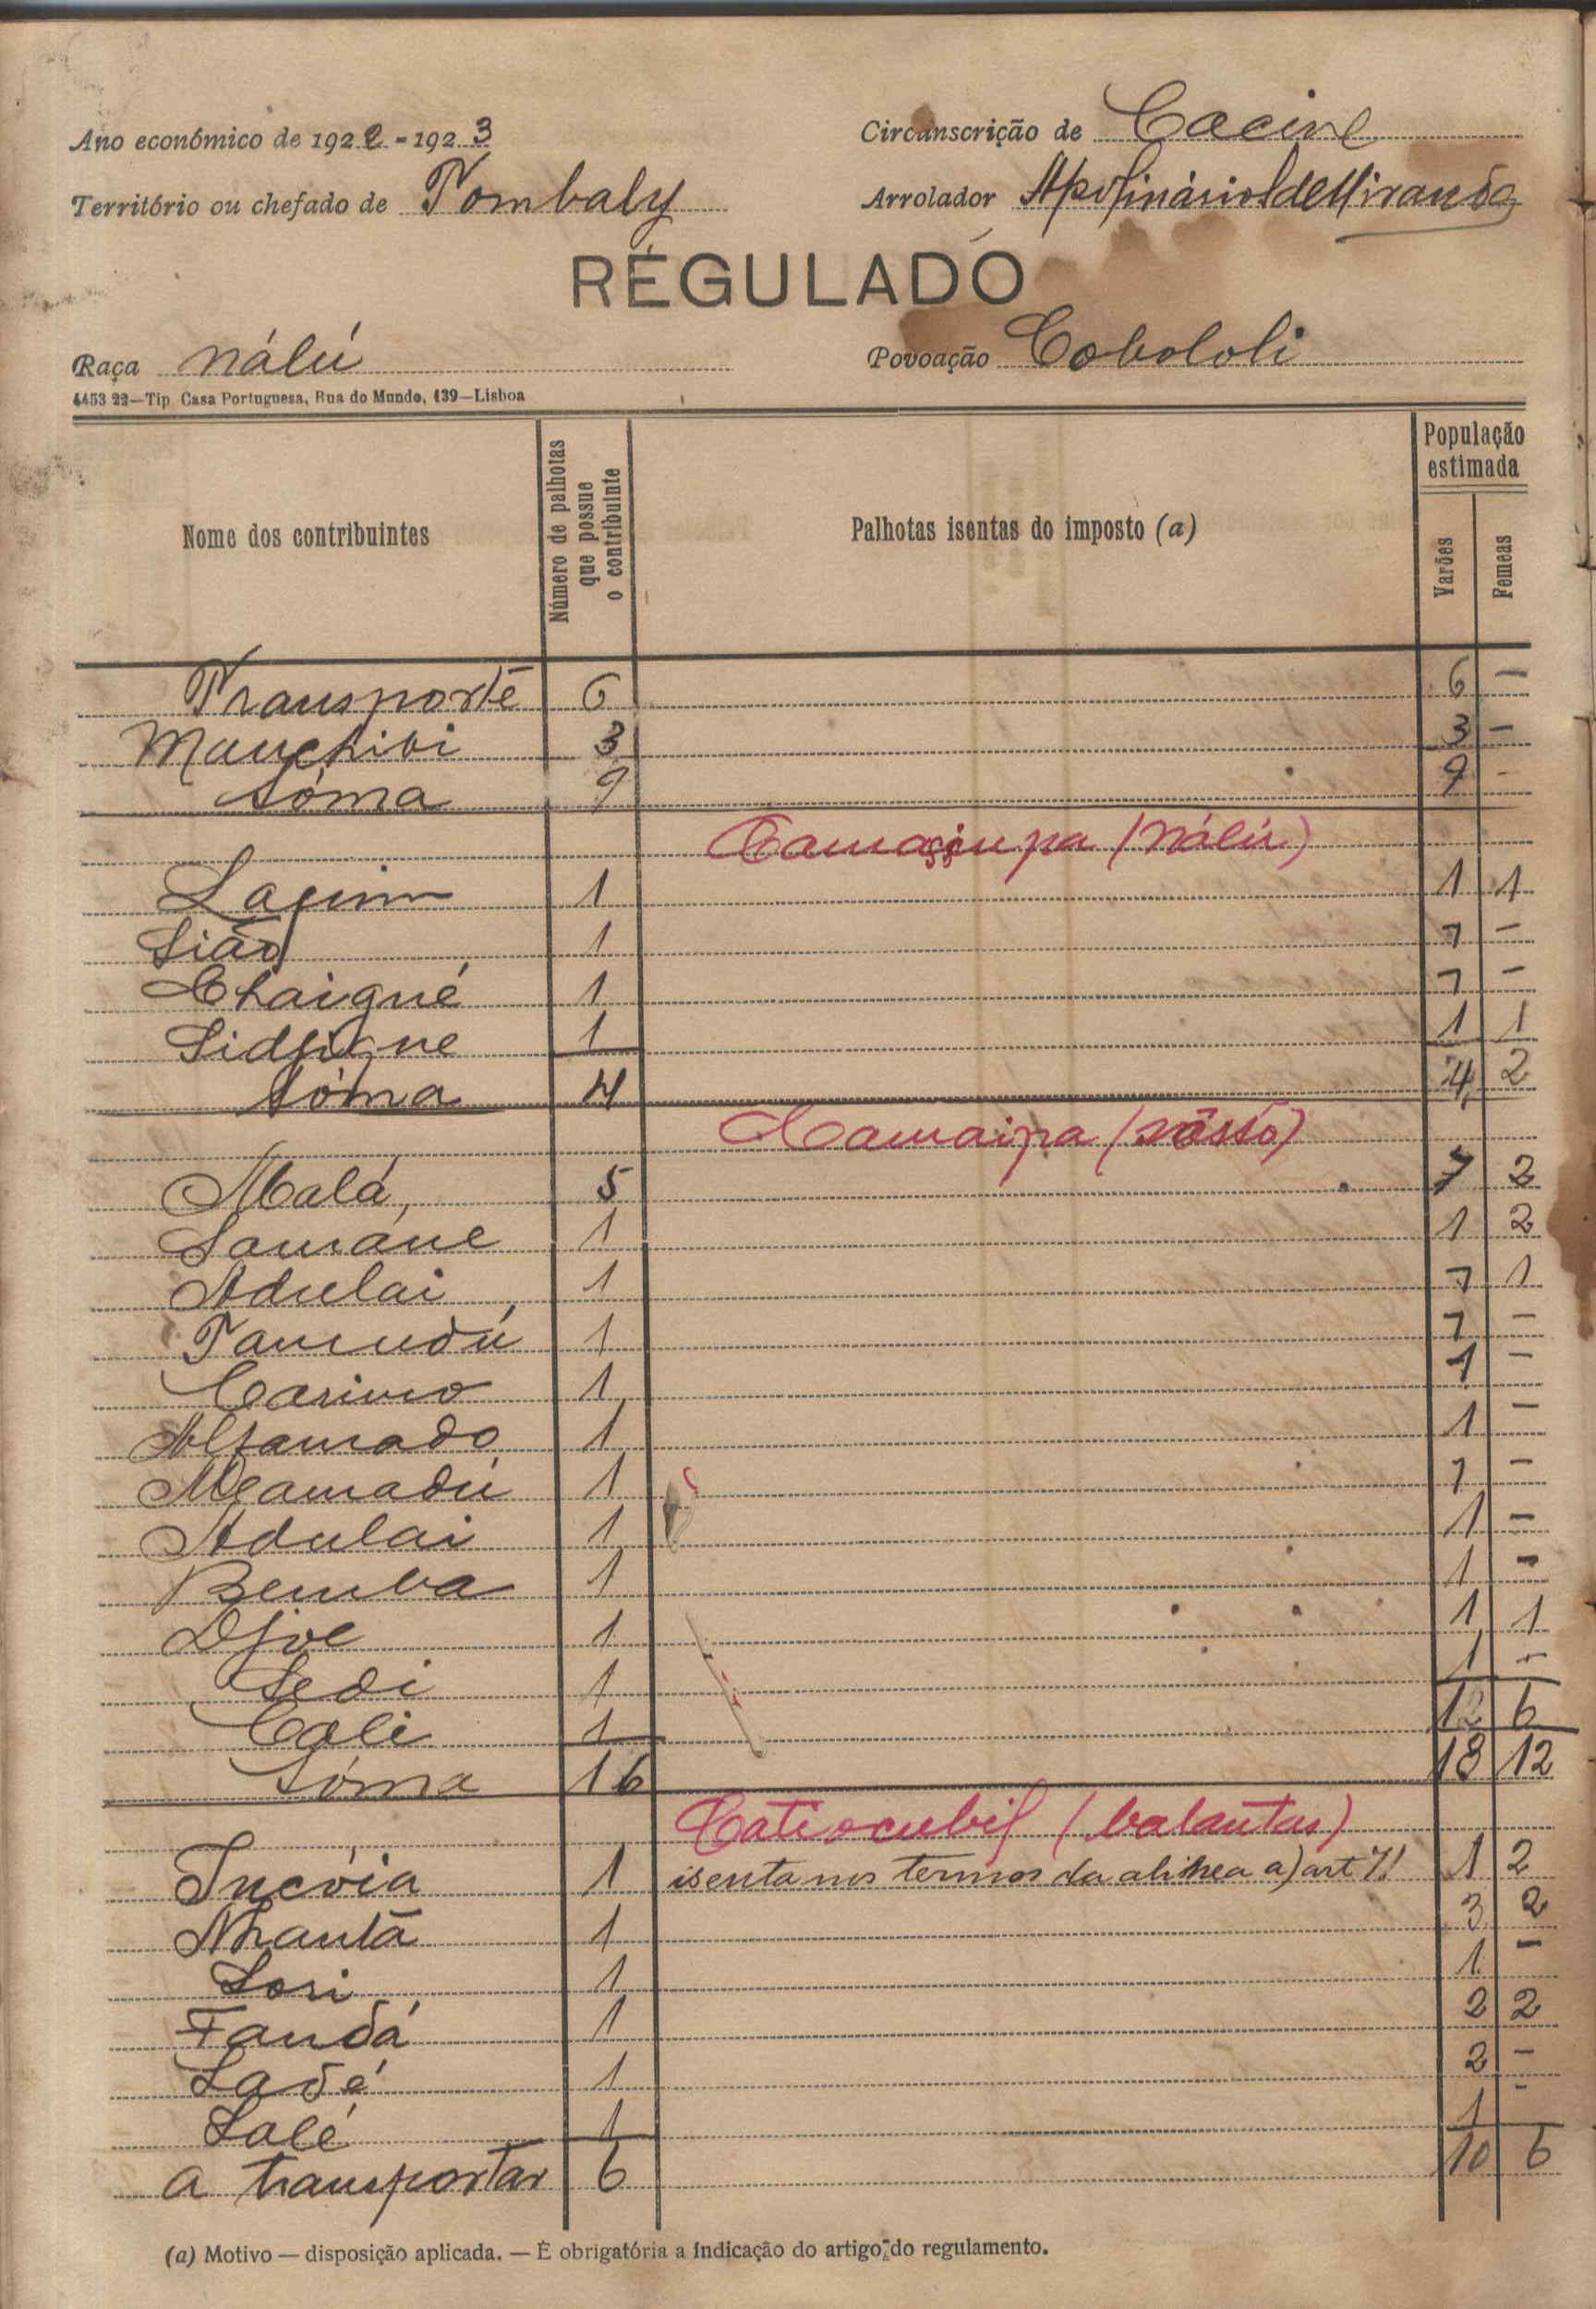 Ano económico de 1922-1923 Circunscrição de Cacine
Território ou chefado de Tombaly Arrolador Apolinário de Miranda
RÉGULADO
Raça nálú Povoação Cobololi
4453 22—Tip Casa Portuguesa, Rua do Mundo, 139—Lisboa
Nome dos contribuintes Número de palhotas que possue o contribuinte Palhotas isentas do imposto (a) População estimada Varões Femeas
Transporte 6 6 —
Manchibi 3 3 —
Sóma 9 9 -
Camaçupa (nálú)
Laçim 1 1 1
Sião 1 1 —
Chaigné 1 1 —
1 1 1
Sóma 4 4 2
Camaipa (sôssó)
Malá 5 7 2
Samáne 1 1 2
Adulai 1 1 1
Tamudú 1 1 —
Carimo 1 1 —
Alfamado 1 1 —
Mamadú 1 1 —
Adulai 1 1 —
Bemba 1 1 —
Djoe 1 1 1
Sedi 1 1 —
Cali 1 12 6
Sóma 16 18 12
Catiocubil (balantas)
Incóia 1 isenta nos termos da alinea a) art 7! 1 2
Nhantã 1 3 2
Sori 1 1 —
Fandá 1 2 2
Ladé 1 2 —
Salé 1 1 -
a transportar 6 10 6
(a) Motivo — disposição aplicada. — É obrigatória a indicação do artigo do regulamento.